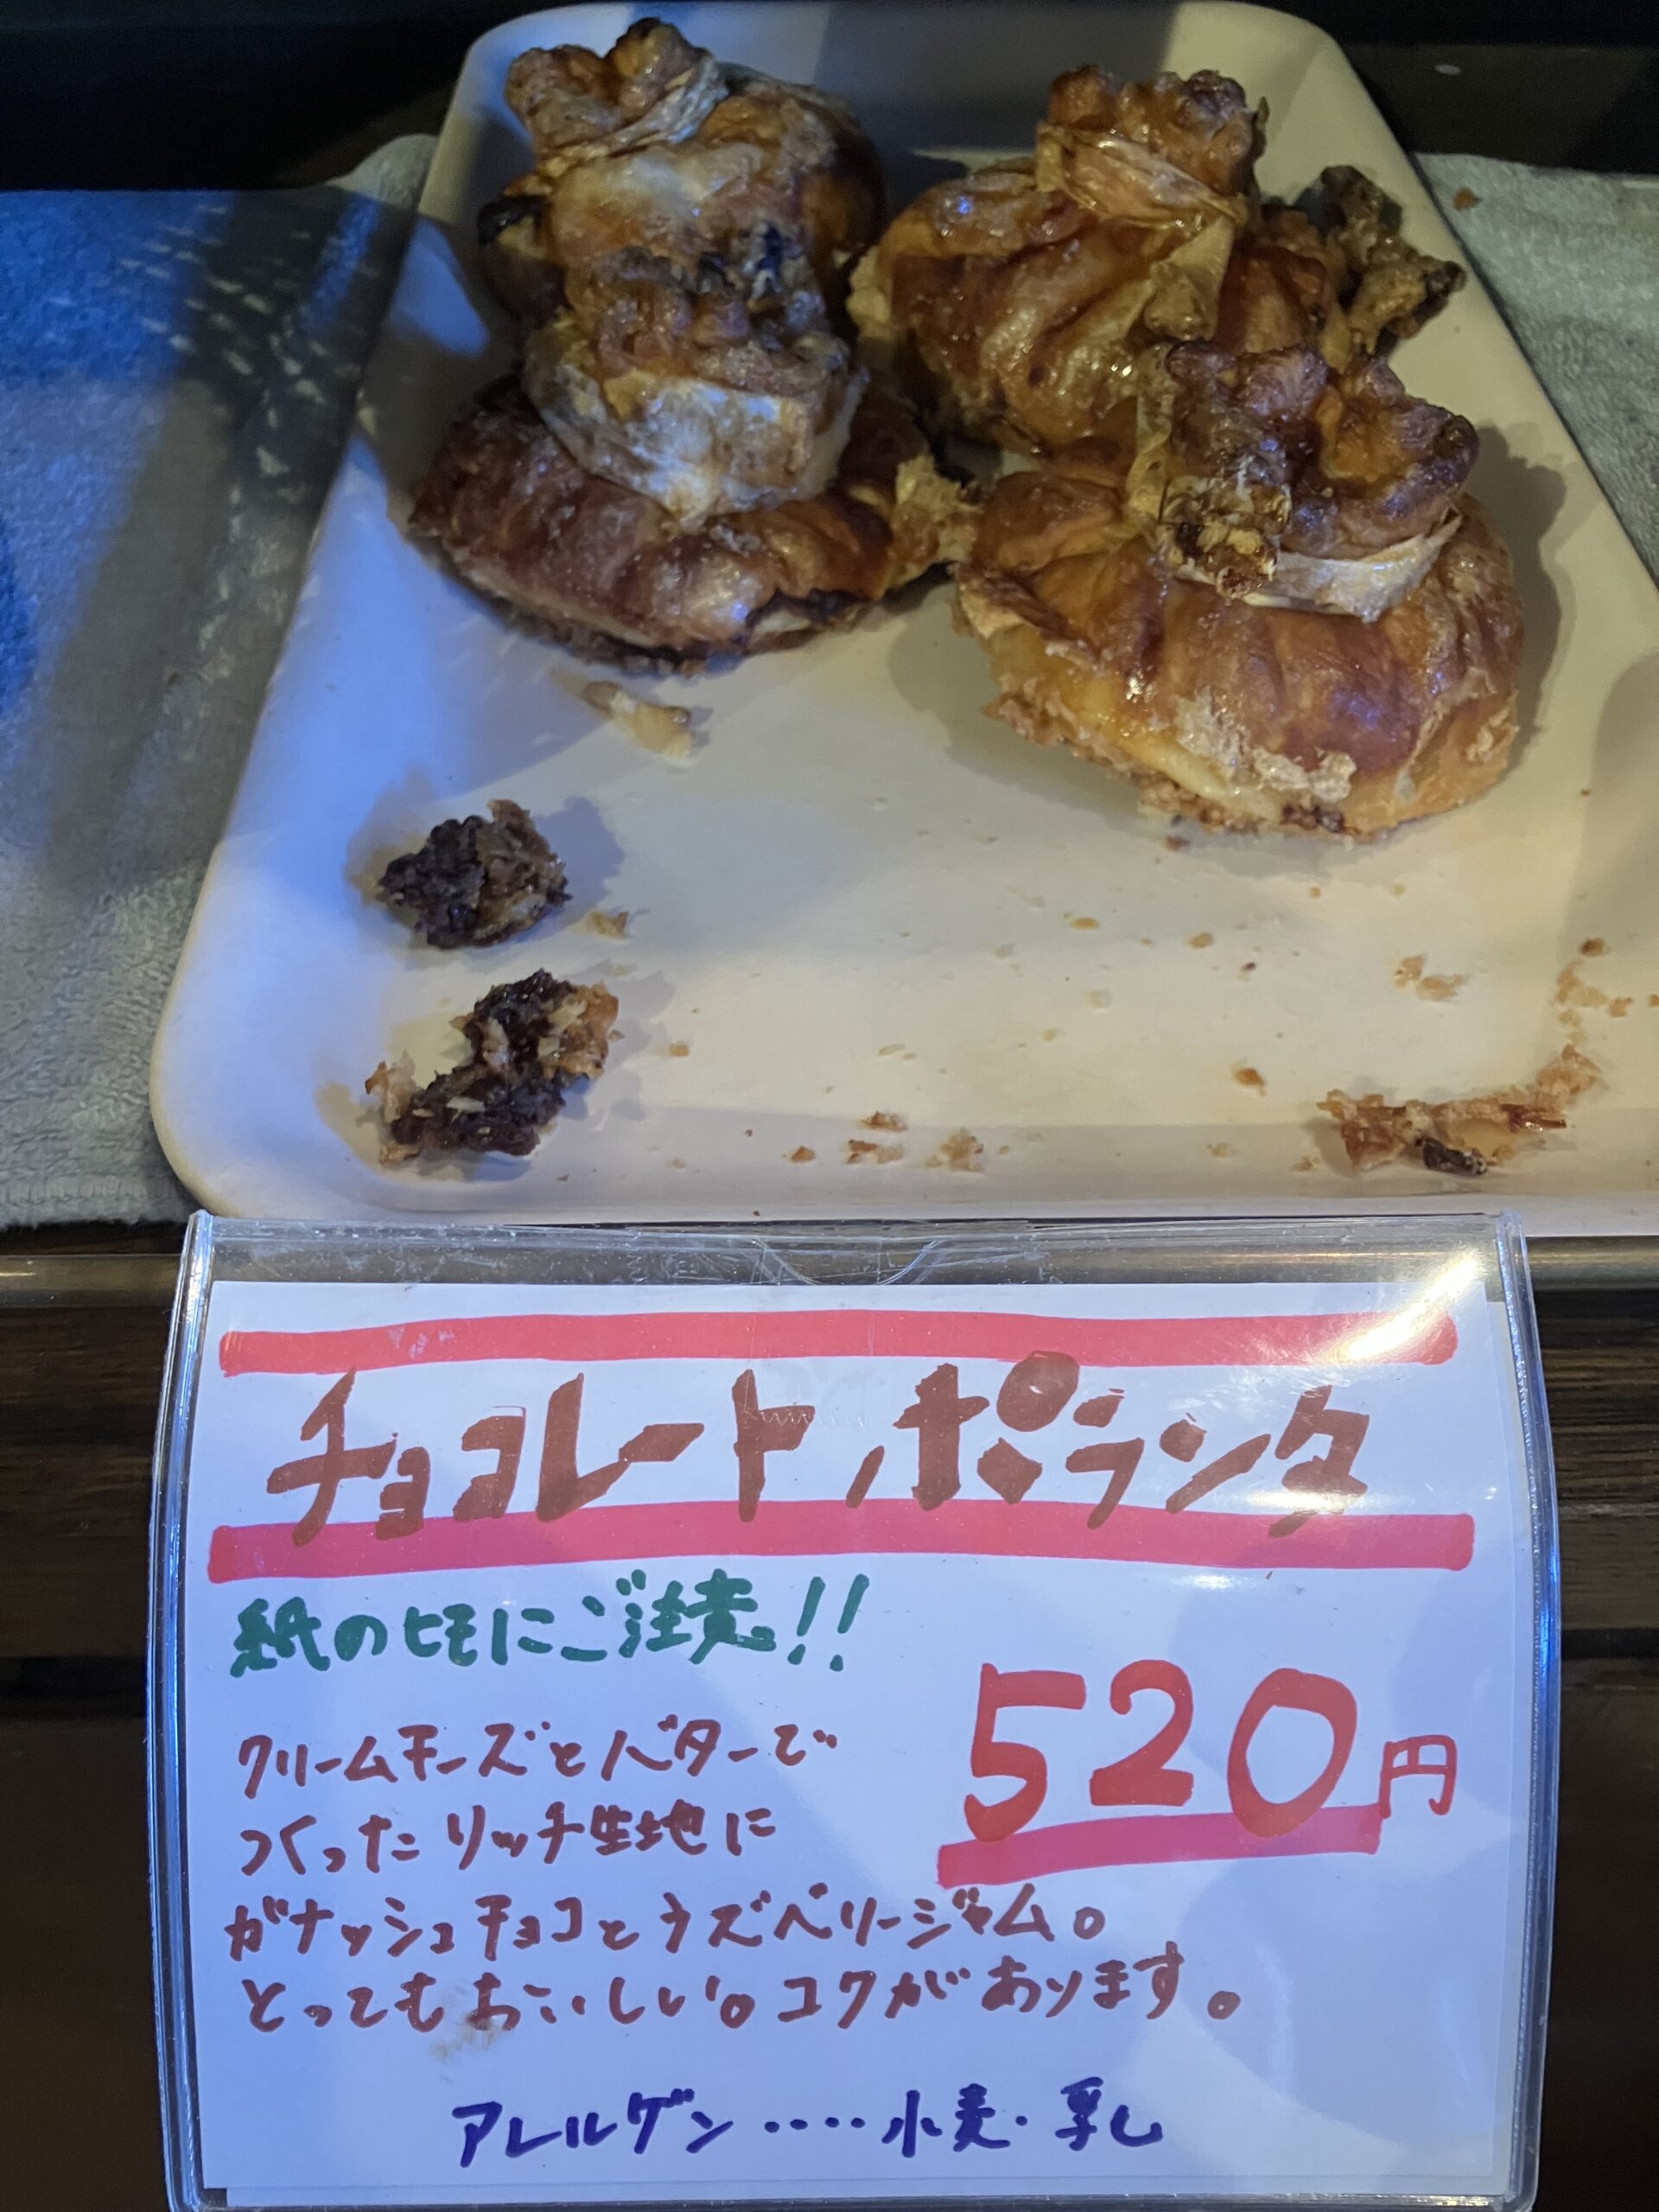 チョコレートポランタ
紙のヒモにご注意!!
520円
クリームチーズとバターで
つくったリッチ生地に
ガナッシュチョコとラズベリージャム。
とってもおいしい。コクがあります。
アレルゲン‥‥小麦・乳